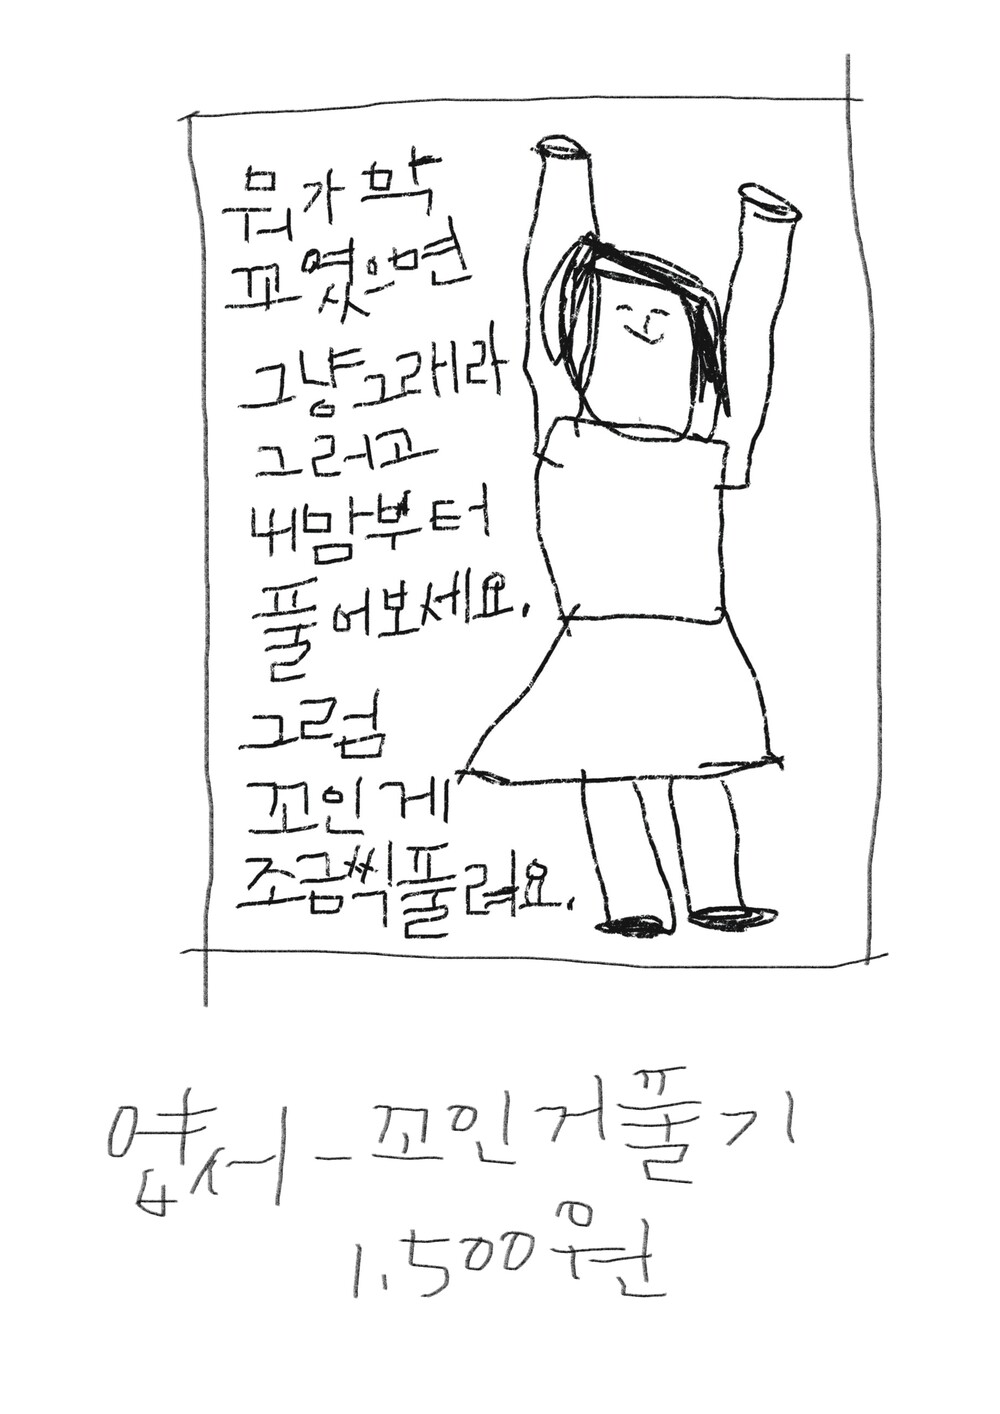 뭐가 확
꼬였으면
그냥 그래라
그러고
내맘부터
풀어보세요.
그럼
꼬인 게
조금씩 풀려요.
엽서 - 꼬인 거 풀기
1.500원